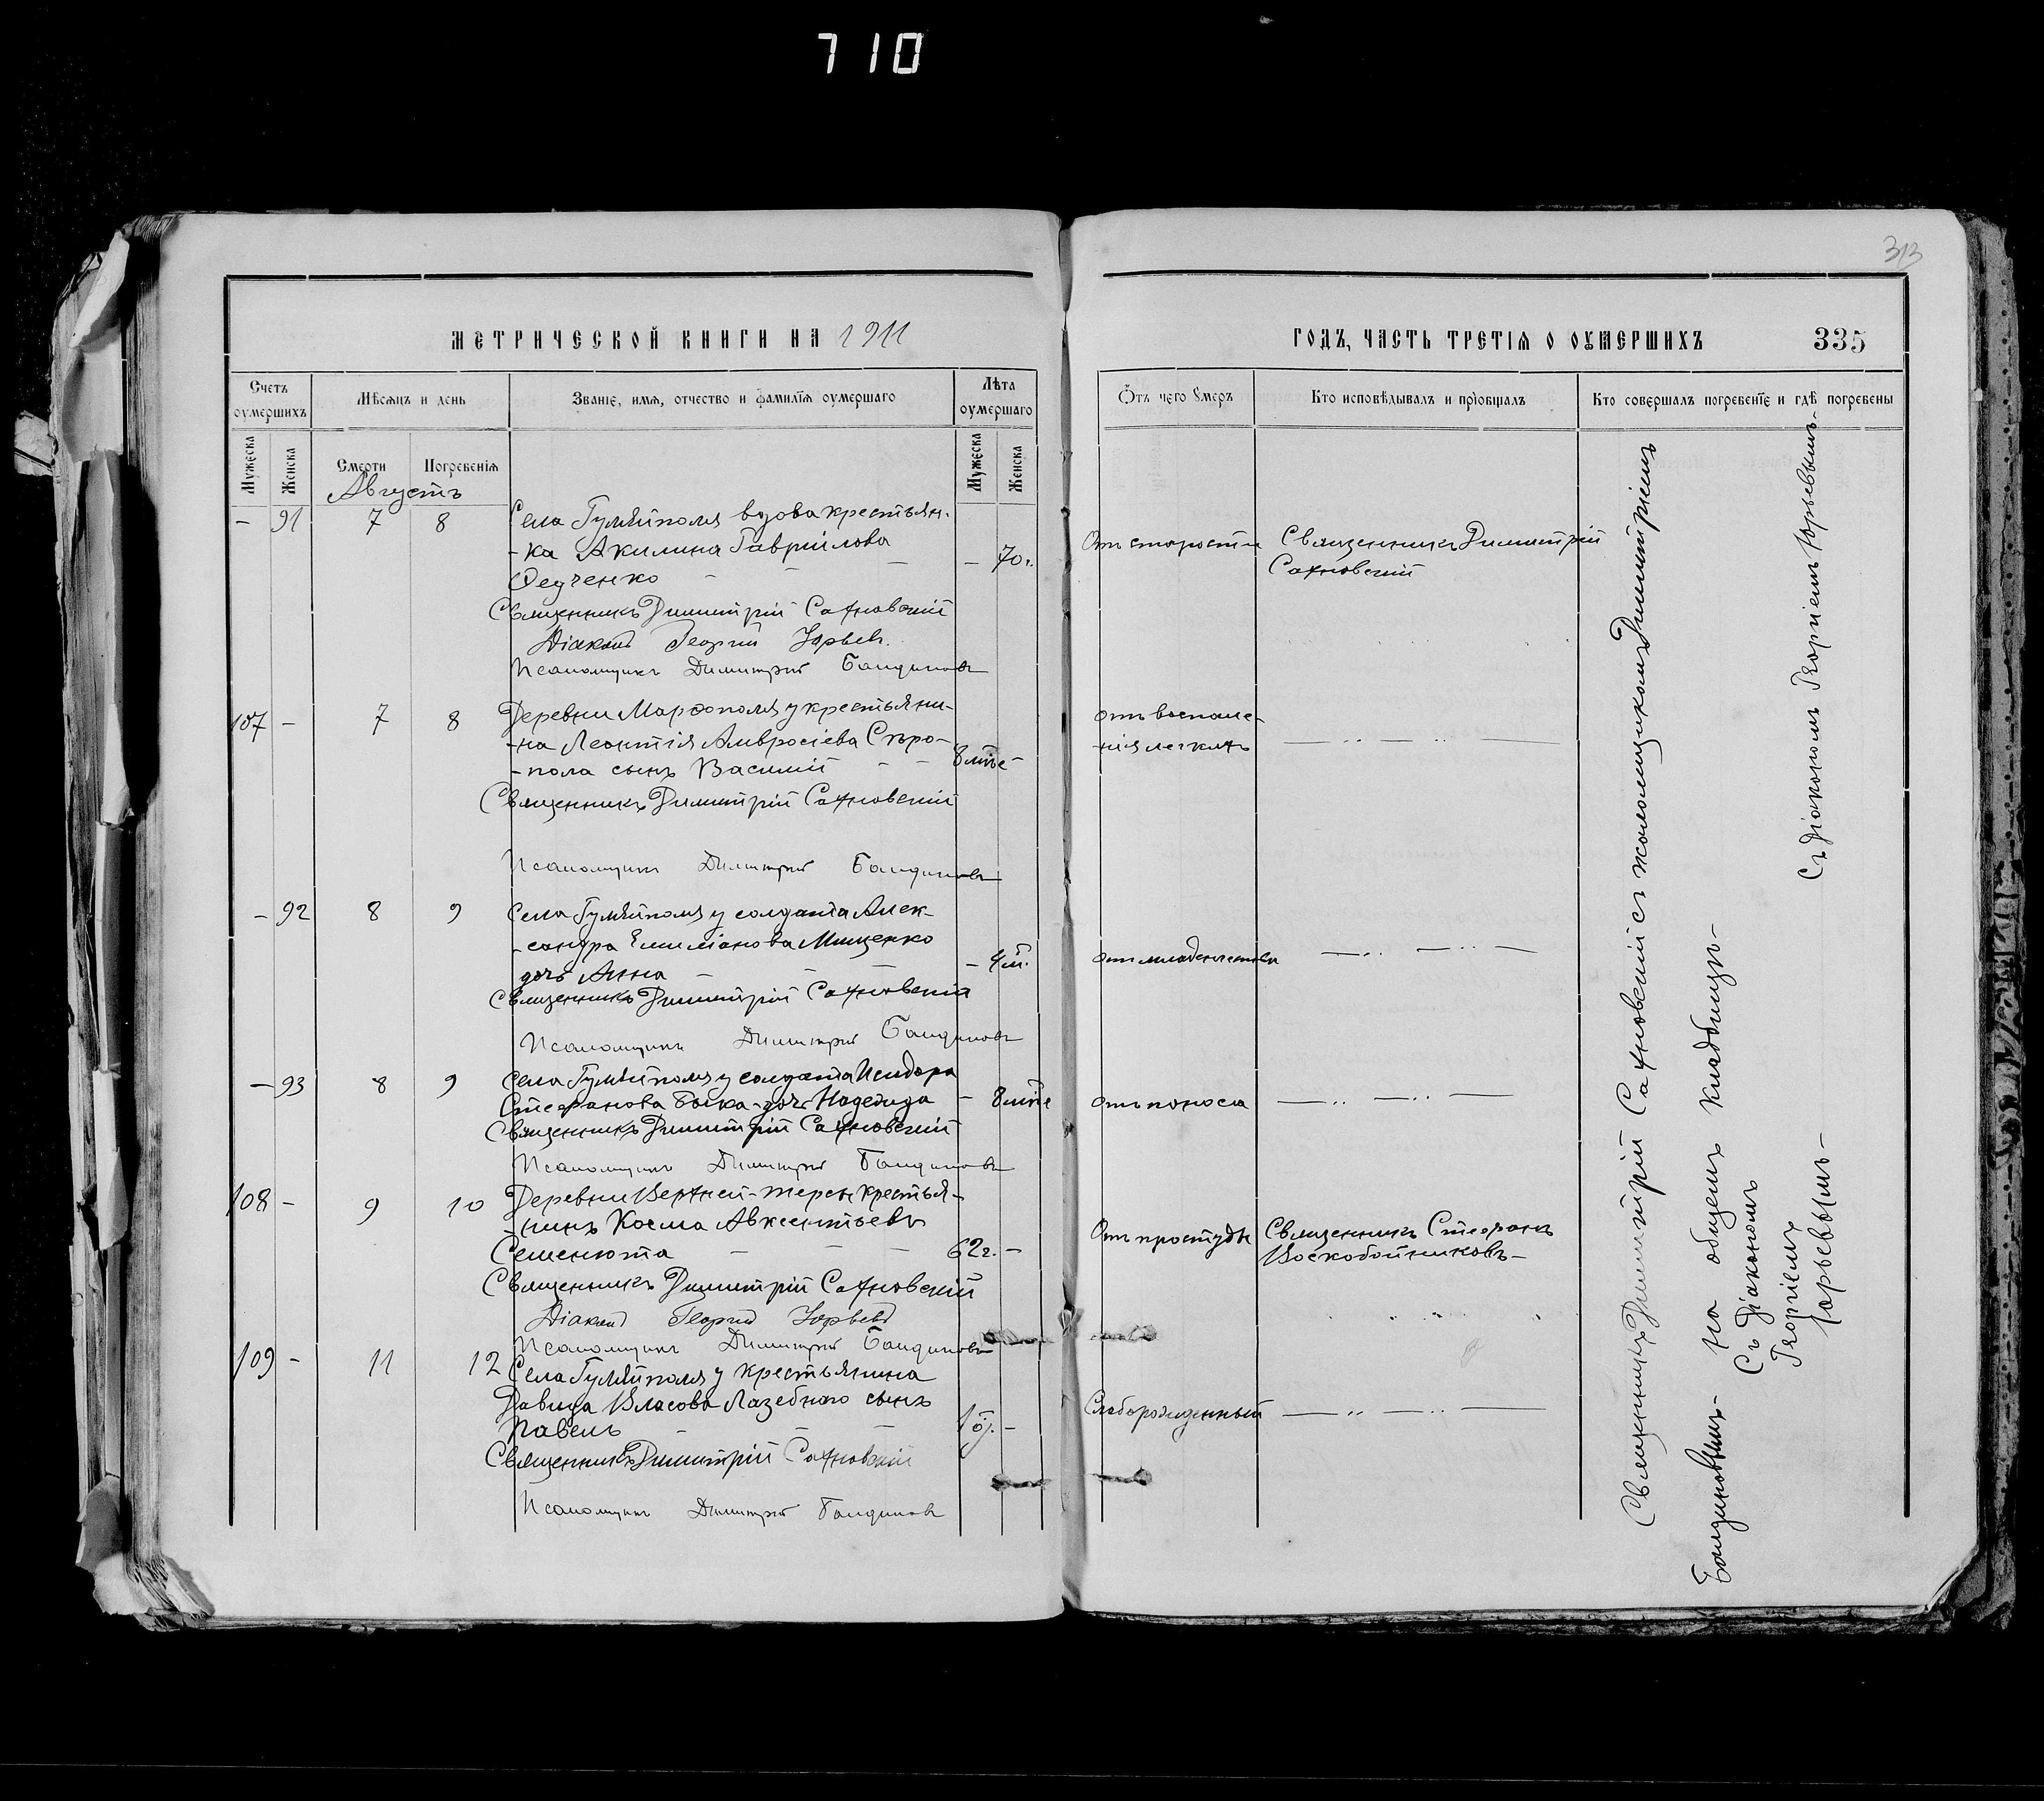 710
313
МЕТРИЧЕСКОЙ КНИГИ НА 1911
ГОДЪ, ЧАСТЬ ТРЕТІЯ О ОУМЕРШИХЪ 335
Счетъ оумершихъ
Мѣсяцъ и день
Званіе, имя, отчество и фамилія оумершаго
Лѣта оумершаго
Отъ чего умеръ
Кто исповѣдывалъ и пріобщалъ
Кто совершалъ погребеніе и гдѣ погребены
Мужеска
Женска
Смерти
Погребенія
Мужеска
Женска
Августъ
- 91 7 8 Села Гуляйполя вдова крестьян-
-ка Акилина Гавріилова
- 70 г.
Отъ старости
Священникъ Димитрій
Сахновскій
Священникъ Димитрій Сахновскій
Діаконъ Георгій Юрьевъ
Псаломщикъ Димитрій Балдиновъ
107 - 7 8 Деревни Марфополя у крестьяни-
-на Леонтія Амвросіева Сѣро-
-пола сынъ Василій
8 лѣтъ -
Отъ воспале-
-нія легкихъ
Священникъ Димитрій Сахновскій
Псаломщикъ Димитрій Балдиновъ
- 92 8 9 Села Гуляйполя у солдата Алек-
-сандра Емиліанова Мищенко
дочь Анна
- 4 м.
Отъ младенчества
Священникъ Димитрій Сахновскій
Псаломщикъ Димитрій Балдиновъ
- 93 8 9 Села Гуляйполя у солдата Исидора
Стефанова Быка дочь Надежда
Отъ поноса
Священникъ Димитрій Сахновскій
Псаломщикъ Димитрій Балдиновъ
108 - 9 10 Деревни Верхней-терсы крестья-
-нинъ Косма Авксентьевъ
Семенюта
62 г. -
Отъ простуды
Священникъ Стефанъ
Воскобойниковъ -
Священникъ Димитрій Сахновскій
Діаконъ Георгій Юрьевъ
Псаломщикъ Димитрій Балдиновъ
109 - 11 12 Села Гуляйполя у крестьянина
Давида Власова Лазебнаго сынъ
Павелъ
Слаборожденный
Священникъ Димитрій Сахновскій
Псаломщикъ Димитрій Балдиновъ
Священникъ Димитрій Сахновскій съ псаломщикомъ Димитріемъ
Балдиновымъ - на общемъ кладбищѣ -
Съ діакономъ
Георгіемъ
Юрьевымъ -
Съ діакономъ Георгіемъ Юрьевымъ -